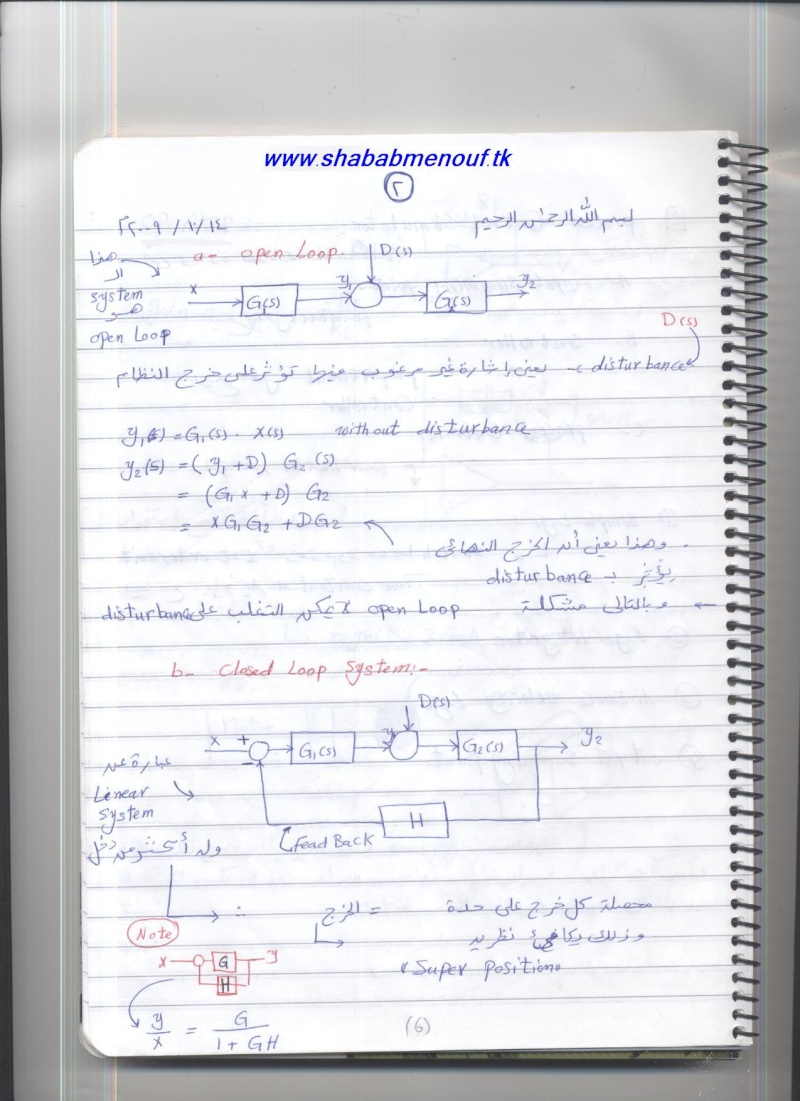 www.shababmenouf.tk
٢
بسم الله الرحمن الرحيم
٢٠٠٩/١٠/١٤م
a- open Loop.
هذا
الـ
system
هو
open Loop
D(s)
x G1(s) y1 G2(s) y2
D(s)
disturbance → يعنى إشارة غير مرغوب فيها تؤثر على خرج النظام
y1(s) = G1(s) . X(s) without disturbance
y2(s) = (y1 + D) G2(s)
= (G1 x + D) G2
= XG1G2 + DG2
وهذا يعنى أنه الخرج النهائى
يؤثر بـ disturbance
← وبالتالى مشكلة open Loop لا يمكن التغلب على disturbance
b- Closed Loop System:-
D(s)
x + - G1(s) y G2(s) y2
H
Fead Back
عبارة عن
Linear
system
وله أكثر من دخل
∴ الخرج = محصلة كل خرج على حدة
وذلك يكافئ نظرية
"Super position"
Note
x G y
H
y/x = G/(1 + GH)
(6)